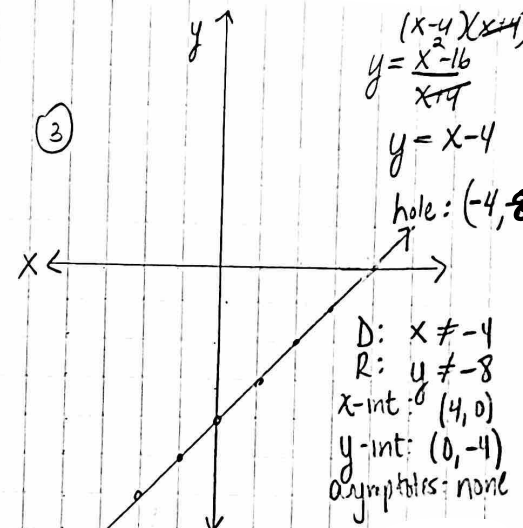 y
(x-4)(x+4)
y = x²-16
x+4
③
y = x-4
hole: (-4,-8
X
D: x ≠ -4
R: y ≠ -8
x-int: (4,0)
y-int: (0,-4)
asymptotes: none